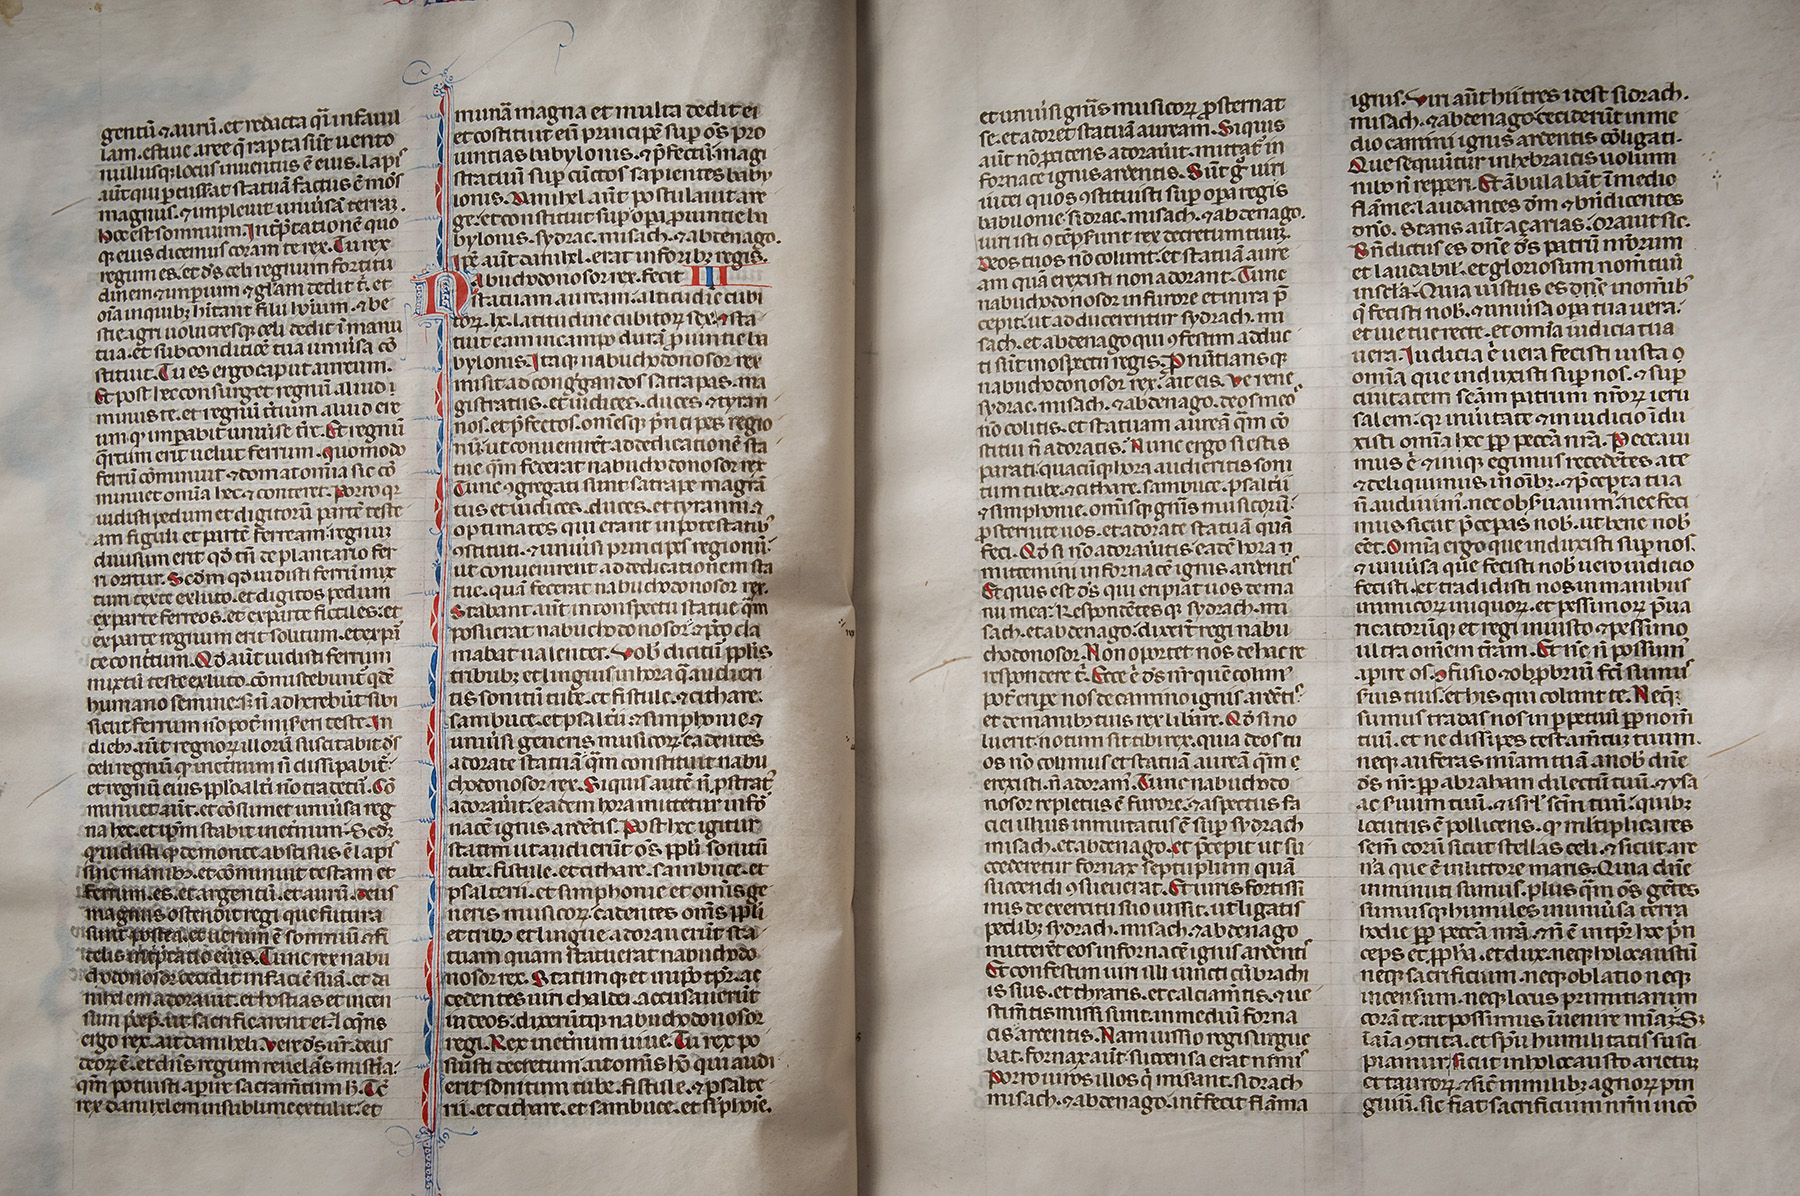 gentū ⁊ aurū. et redacta q̄ in fauil
lam. estiue aree q̄ rapta sūt uento
nullusq; locus inuentus ē eius. lapis
aūt qui percusserat statuā factus ē mōs
magnus. ⁊ impleuit uniuersā terram.
hoc est somnium. Interpretationē quo
q; dicemus coram te rex. Tu rex
regum es. et d̄s celi regnum fortitu
dinem ⁊ imperium ⁊ gl̄am dedit t̄. et
oīa in quibus habitant filii hoīum. ⁊ be
stie agri uolucresq; celi dedit ī manu
tua. et sub condicione tua uniuersa cō
stituit. Tu es ergo caput aureum.
Et post hec consurget regnū aliud i
minus te. et regnū tertium aliud ere
um q; imperabit uniuerse terre. Et regnū
quartum erit uelut ferrum. quomodo
ferrū cōminuit ⁊ domat omīa sic cō
minuet omīa hec ⁊ conteret. Porro q;
uidisti pedum et digitorū partē teste
am figuli et partē ferream. regnum
diuisum erit qd̄ tn̄ de plantario fer
ri oritur. Scd̄m qd̄ uidisti ferrū mix
tum teste ex luto. et digitos pedum
ex parte ferreos. et ex parte fictiles. et
ex parte regnum erit solutum. et ex par
te contritum. Qd̄ aūt uidisti ferrum
mixtū teste ex luto. cōmiscebunt̄ q̄dē
humano semine. s; n̄ adherebūt sibi
sicut ferrum nō potest misceri teste. In
dieb; aūt regnorum illorū suscitabit d̄s
celi regnū q; in et̄num n̄ dissipabit̄.
et regnū eius populo alt̄i nō tradetur. Cō
minuet aūt. et cōsumet uniuersa reg
na hec. et ip̄m stabit in et̄num. Scd̄m
q; uidisti q; de monte abscisus ē lapis
sine manib; et cōminuit testam et
ferrum. es. et argentū. et aurū. deus
magnus ostendit regi que futura
sunt postea. et uerum ē somniū ⁊ fi
delis interpretatio eius. Tunc rex nabu
chodonosor cecidit in faciē suā. et da
nihelem adorauit. et hostias et incen
sum precepit ut sacrificarent ei. Loquens
ergo rex. ait danihel. Vere d̄s uester. deus
deorum ē. et dn̄s regum reuelans misteria.
qm̄ potuisti aperire sacramentum h̄. Tc̄
rex danihelem in sublime extulit. et
munā magna et multa dedit ei
et cōstituit eū principē super oēs pro
uintias babylonis. ⁊ p̄fectū magi
stratuū super cūctos sapientes baby
lonis. Danihel aūt postulauit a re
ge. et constituit super opera prouintie ba
bylonis. sydrac. misach. ⁊ abdenago.
Ipse aūt danihel. erat in forib; regis.
Nabuchodonosor rex. fecit III
statuam auream. altitudine cubi
torum. lx. latitudine cubitorum sex. ⁊ sta
tuit eam in campo durā prouintie ba
bylonis. Itaq; nabuchodonosor rex
misit ad cōgregandos satrapas. ma
gistratus. et iudices. duces ⁊ tyran
nos. et p̄fectos. omnesq; prīcipes regio
nū. ut conuenirēt ad dedicationē sta
tue qm̄ fecerat nabuchodonosor rex
Tunc ꝯgregati sunt satrape magistra
tus et iudices. duces. et tyranni ⁊
optimates qui erant in potestatib;
ꝯstituti. ⁊ uniuersi principes regionū.
ut conuenirent ad dedicationem sta
tue. quā fecerat nabuchodonosor rex.
Stabant. aūt in conspectu statue qm̄
posuerat nabuchodonosor. ⁊ preco cla
mabat ualenter. Vob̄ dicitur populis
tribub; et linguis. in hora q̄ audieri
tis sonitū tube. et fistule. ⁊ cithare.
sambuce. et psalterii. ⁊ simphonie. ⁊
uniuersi generis musicorum. cadentes
adorate statuā qm̄ constituit nabu
chodonosor rex. Siquis autē n̄ prostratus
adorauerit. eadem hora mittetur in for
nacē ignis ardētis. Post hec igitur
statim ut audierūt oēs populi sonitū
tube. fistule. et cithare. sambuce. et
psalterii. et simphonie et omīs ge
neris musicorum. cadentes omēs populi
et tribus et lingue adorauerūt sta
tuam quam statuerat nabuchodo
nosor rex. Statimq; et in ipso tempore. ac
cedentes uiri chaldei. accusauerūt
iudeos. dixerūtq; nabuchodonosor
regi. Rex in et̄num uiue. Tu rex po
suisti decretum. ut omīs hō qui audi
erit sonitum tube. fistule. ⁊ psalte
rii. et cithare. et sambuce. et siphōie.
et uniuersi gn̄is musicorum prosternat
se. et adoret statuā auream. Siquis
aūt nō procidens adorauerit. mittatur in
fornacē ignis ardentis. Sūt ergo uiri
iudei quos ꝯstituisti super opera regis
babilonie. sidrac. misach. ⁊ abdenago.
uiri isti ꝯtēpserunt rex decretum tuum.
Deos tuos nō colunt. et statuā aure
am quā erexisti non adorant. Tunc
nabuchodonosor in furore et in ira pre
cepit. ut adducerentur sydrach. mi
sach. et abdenago qui ꝯfestim adduc
ti sūt in ospectu regis. Pronūtiansq;
nabuchodonosor rex. ait eis. Vere ne
sydrac. misach. ⁊ abdenago. deos meos
nō colitis. et statuam aureā qm̄ cō
stitui n̄ adoratis. Nunc ergo si estis
parati. quacūq; hora audieritis soni
tum tube. ⁊ cithare. sambuce. psalterii
⁊ simphonie. omīsq; gn̄is musicorū.
prosternite uos. et adorate statuā quā
feci. Qd̄ si nō adoraueritis. eadē hora
mittemini in fornacē ignis ardentis
Et quis est d̄s. qui eripiat uos de ma
nu mea? Respondētes q; sydrach. mi
sach. et abdenago. dixerūt regi nabu
chodonosor. Non oportet nos de hac re
respondere t̄. Ecce ē d̄s nr̄ quē colimus
potest eripe nos de camino ignis ardētis.
et de manib; tuis rex liberare. Qd̄ si no
luerit. notum sit tibi rex. quia deos tu
os nō colimus et statuā aureā qm̄ e
erexisti. n̄ adoram. Tunc nabuchodo
nosor repletus ē furore. ⁊ aspectus fa
ciei illius inmutatus ē super sydrach
misach. et abdenago. et precepit ut su
ccederetur fornax septuplum quā
succendi ꝯsueuerat. Et uiris fortissi
mis de exercitu suo iussit. ut ligatis
pedib; sydrach. misach. ⁊ abdenago
mitterēt eos in fornacē ignis ardentis
Et confestim uiri illi uincti cū brachi
is suis. et thyaris. et calciamentis. ⁊ ue
stimentis missi sunt. in mediū forna
cis ardentis. Nam iussio regis urgue
bat. fornax aūt succensa erat nimis
Porro uiros illos q̄ miserant. sidrach
misach. ⁊ abdenago. interfecit flāma
ignis. Viri aūt hii tres idest sidrach.
misach. ⁊ abdenago ceciderūt in me
dio camini ignis ardentis cōligati.
Que sequūtur in hebraicis uolumi
nib; n̄ repperi. Et ābulabāt ī medio
flāme. laudantes dm̄. ⁊ bn̄dicentes
dn̄o. Stans aūt açarias. orauit sic.
Bn̄dictus es dn̄e d̄s patrū nr̄orum
et laudabilis. et gloriosum nom̄ tuū
in scl̄a. Quia iustus es dn̄e in omīb;
q̄ fecisti nob̄. ⁊ uniuersa opa tua uera.
et uie tue recte. et omīa iudicia tua
uera. Iudicia ē uera fecisti iuxta o
omīa que induxisti super nos. ⁊ super
ciuitatem scām patrum nr̄orum ieru
salem. q; in ueritate ⁊ in iudicio īdu
xisti omīa hec pp̄ peccā nr̄a. Peccaui
mus ē ⁊ iniq; egimus recedētes a te
⁊ deliquimus in oīb;. ⁊ precepta tua
n̄ audiuim; nec obseruauim; nec feci
mus sicut p̄ceperas nob̄. ut bene nob̄
eēt. Omīa ergo que induxisti super nos.
⁊ uniuersa que fecisti nob̄ uero iudicio
fecisti. et tradidisti nos in manibus
inimicorum iniquorum. et pessimorum p̄ua
ricatorūq; et regi iniusto ⁊ pessimo
ultra omēm terram. Et nc̄ n̄ possum;
aperire os. ꝯfusio. ⁊ obprobriū facti sumus
seruis tuis. et his qui colunt te. Neq;
sumus tradas nos in perpetuū pp̄ nom̄
tuū. et ne dissipes testamtum tuum.
neq; auferas miam tuā a nob̄ dn̄e
d̄s nr̄. pp̄ abraham dilectū tuū. ⁊ ysa
ac seruum tuū. ⁊ isrl̄ scm̄ tuū. quib;
locutus ē pollicens. q; multiplicares
semē eorū sicut stellas celi. ⁊ sicut are
nā que ē in littore maris. Quia dn̄e
inminuti sumus. plus qm̄ oēs gētes
sumusq; humiles in uniuersa terra
hodie pp̄ peccā nr̄a. ⁊ n̄ ē in tpr̄ hoc prin
ceps et propha. et dux. neq; holocaustū
neq; sacrificium. neq; oblatio neq;
incensum. neq; locus primitiarum
corā te. ut possimus īuenire miam. S;
in aīa ꝯtrita. et spū humilitatis susci
piamur. Sicut in holocausto arietum
et taurorum. ⁊ sic̄ in milib; agnorum pin
guiū. sic fiat sacrificium nr̄m in cōs